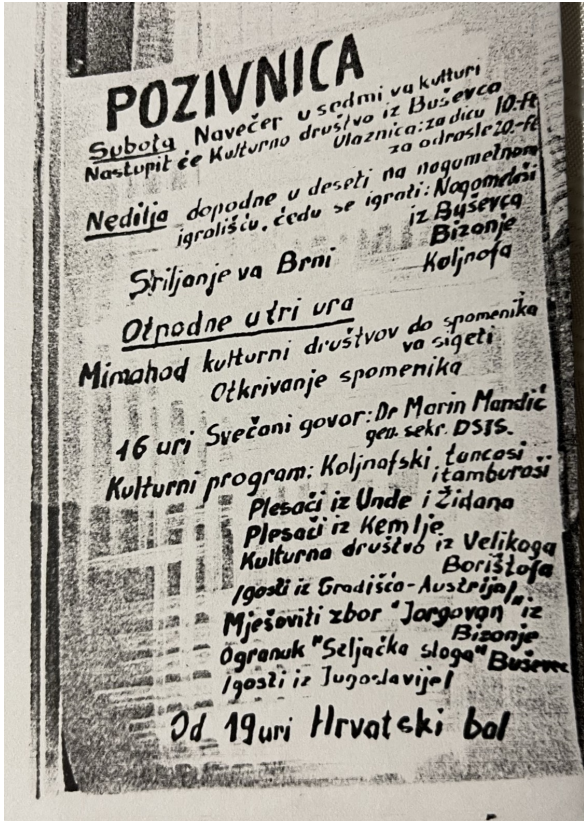 POZIVNICA
Subota Navečer u sedmi va kulturi
Nastupit će Kulturno društvo iz Buševca
Ulaznica: za dicu 10.-Ft
za odrasle 20.-Ft
Nedilja dopodne u deseti na nogumetnom
igrališću, ćedu se igrati: Nogometaši
iz Buševca
Bizonje
Koljnofa
Striljanje va Brni
Otpodne u tri ura
Mimohod kulturni društvov do spomenika
va sigeti
Otkrivanje spomenika
16 uri Svečani govor: Dr Marin Mandić
gen. sekr. DSJS.
Kulturni program: Koljnofski tancoši
i tamburaši
Plesači iz Unde i Židana
Plesači iz Kemlje
Kulturno društvo iz Velikoga
Borištofa
/gosti iz Gradišća-Austrija/
Mješoviti zbor "Jorgovan" iz
Bizonje
Ogranuk "Seljačka sloga" Buševec
/gosti iz Jugoslavije/
Od 19 uri Hrvatski bal